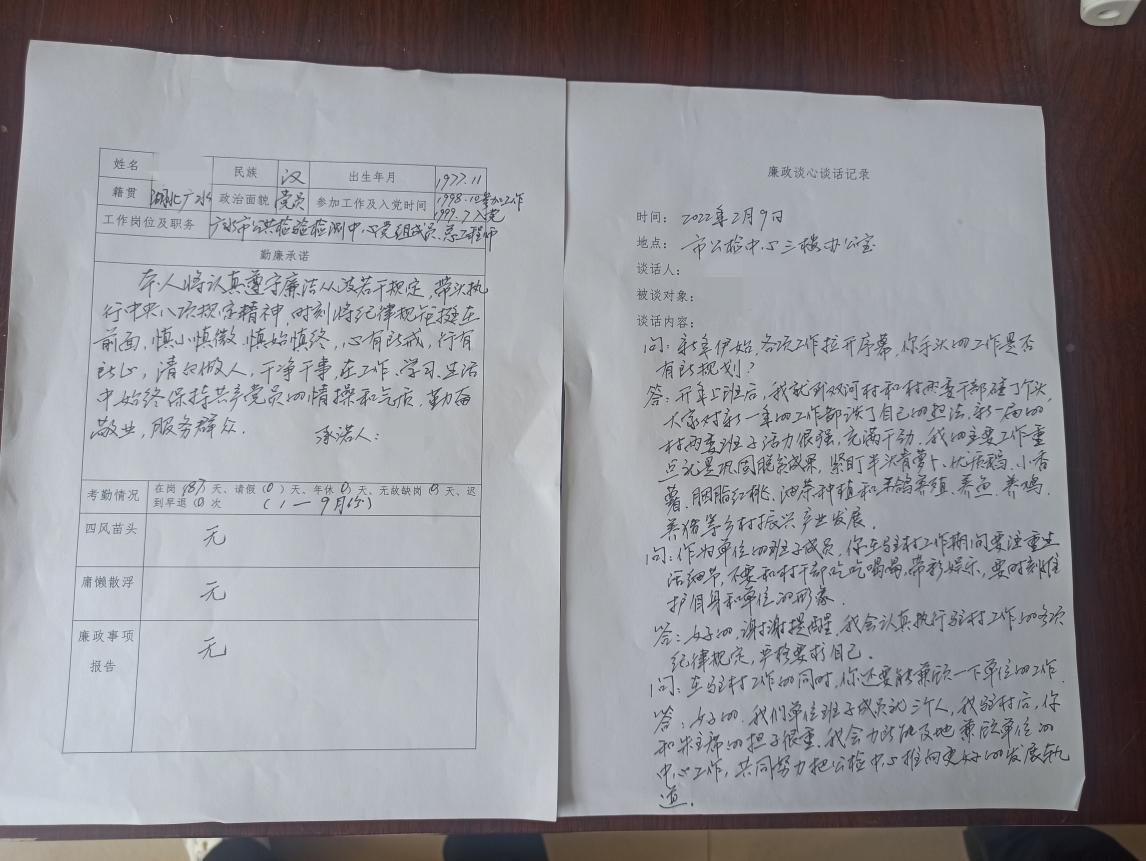 姓名
民族 汉 出生年月 1977.11
籍贯 湖北广水 政治面貌 党员 参加工作及入党时间 1998.12参加工作
1999.7入党
工作岗位及职务 广水市公共检验检测中心党组成员、总工程师
勤廉承诺
本人将认真遵守廉洁从政若干规定,带头执
行中央八项规定精神,时刻将纪律规矩挺在
前面,慎小慎微,慎始慎终,心有所戒,行有
所止,清白做人,干净干事,在工作、学习、生活
中始终保持共产党员的情操和气质,勤勉
敬业,服务群众。
承诺人:
考勤情况 在岗(187)天、请假(0)天、年休(0)天、无故缺岗(0)天、迟
到早退(0)次 (1—9月份)
四风苗头 无
庸懒散浮 无
廉政事项 无
报告
廉政谈心谈话记录
时间: 2022年2月9日
地点: 市公检中心三楼办公室
谈话人:
被谈对象:
谈话内容:
问:新年伊始,各项工作拉开序幕,你手头的工作是否
有所规划?
答:开年上班后,我就到双河村和村两委干部碰了个头,
大家对新一年的工作都谈了自己的想法,新一届的
村两委班子活力很强,充满干劲。我的主要工作重
点就是巩固脱贫成果,紧盯半头青萝卜、优质稻、小香
薯、胭脂红桃、油茶种植和养鸽养殖、养鱼、养鸡、
养猪等乡村振兴产业发展。
问:作为单位的班子成员,你在驻村工作期间要注重生
活细节,不要和村干部吃吃喝喝,带彩娱乐,要时刻维
护自身和单位的形象。
答:好的,谢谢提醒,我会认真执行驻村工作的各项
纪律规定,严格要求自己。
问:在驻村工作的同时,你还要能兼顾一下单位的工作。
答:好的,我们单位班子成员就三个人,我驻村后,你
和朱主席的担子很重,我会力所能及地兼顾单位的
中心工作,共同努力把公检中心推向更好的发展轨
道。